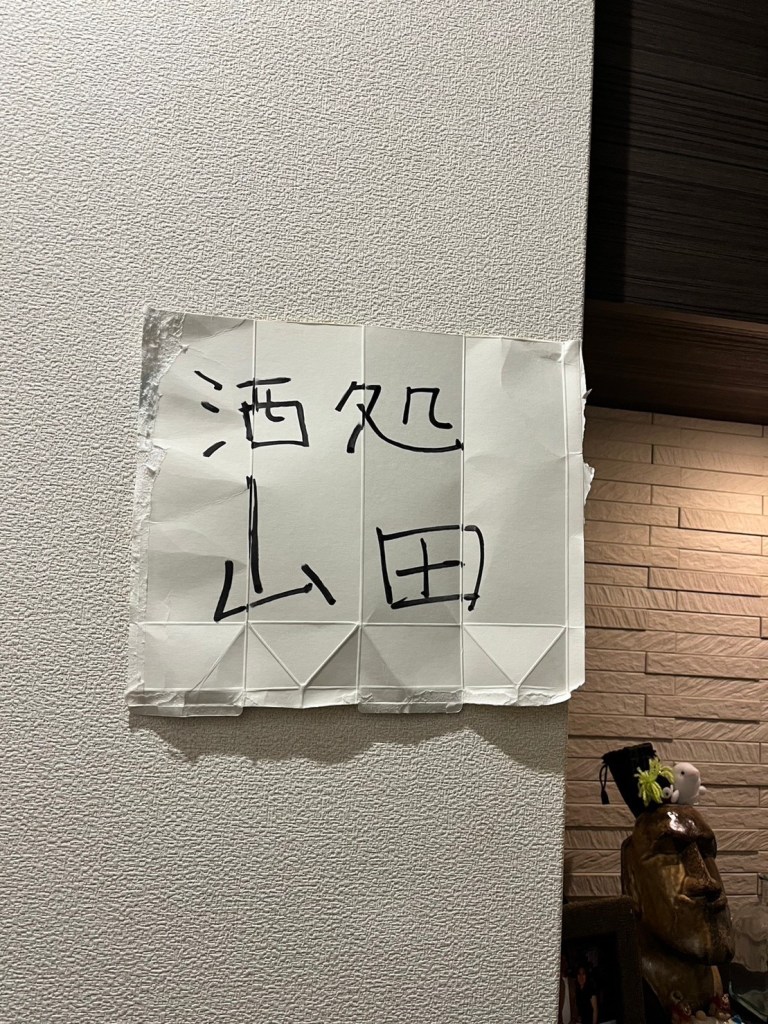 酒処
山田